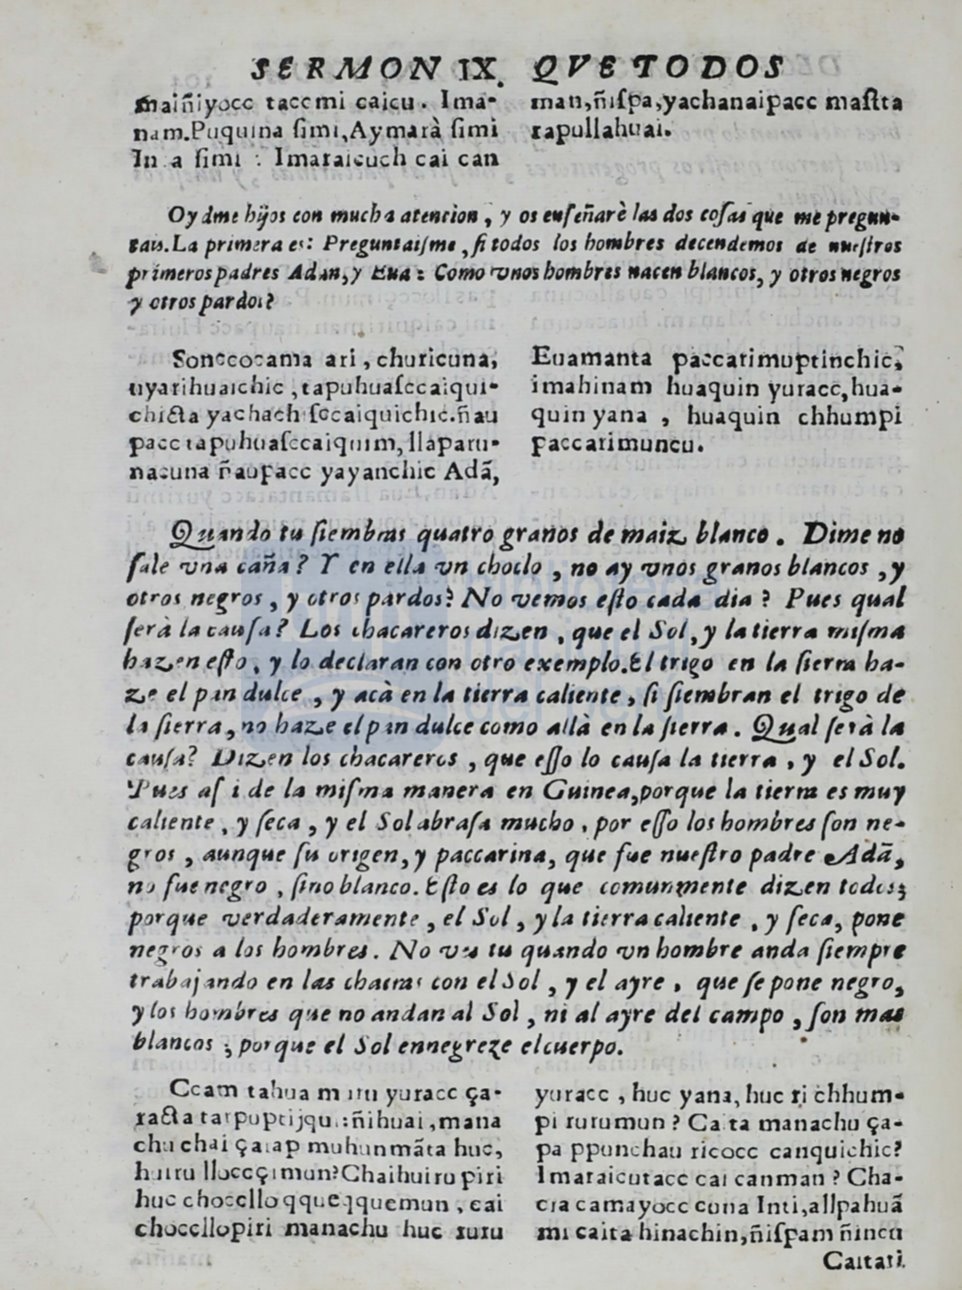 SERMON IX. QVE TODOS
maiñiyocc taccmi caicu. Ima-
nam. Puquina ſimi, Aymarà ſimi
Inca ſimi? Imaraicuch cai can
man, ñiſpa, yachanaipacc maſtta
rapullahuai.
Oydme hijos con mucha atencion, y os enſeñarè las dos coſas que me pregun-
tais. La primera es: Preguntaiſme, ſi todos los hombres decendemos de nueſtros
primeros padres Adan, y Eua: Como vnos hombres nacen blancos, y otros negros
y otros pardos?
Sonccocama ari, churicuna,
uyarihuaichic, tapuhuaſccaiqui-
chicta yachachiſccaiquichic. ñau
pacc tapuhuaſccaiquim, llaparu-
nacuna ñaupacc yayanchic Adã,
Euamanta paccarimuptinchic,
imahinam huaquin yuracc, hua-
quin yana, huaquin chhumpi
paccarimuncu.
Quando tu ſiembras quatro granos de maiz blanco. Dime no
ſale vna caña? Y en ella vn choclo, no ay vnos granos blancos, y
otros negros, y otros pardos? No vemos eſto cada dia? Pues qual
ſerà la cauſa? Los chacareros dizen, que el Sol, y la tierra miſma
hazen eſto, y lo declaran con otro exemplo. El trigo en la ſierra ha-
ze el pan dulce, y acà en la tierra caliente, ſi ſiembran el trigo de
la ſierra, no haze el pan dulce como allà en la ſierra. Qual ſerà la
cauſa? Dizen los chacareros, que eſſo lo cauſa la tierra, y el Sol.
Pues aſ i de la miſma manera en Guinea, porque la tierra es muy
caliente, y ſeca, y el Sol abraſa mucho, por eſſo los hombres ſon ne-
gros, aunque ſu origen, y paccarina, que fue nueſtro padre Adã,
no fue negro, ſino blanco. Eſto es lo que comunmente dizen todos;
porque verdaderamente, el Sol, y la tierra caliente, y ſeca, pone
negros a los hombres. No ves tu quando vn hombre anda ſiempre
trabajando en las chacras con el Sol, y el ayre, que ſe pone negro,
y los hombres que no andan al Sol, ni al ayre del campo, ſon mas
blancos; porque el Sol ennegreze el cuerpo.
Ccam tahua muru yuracc ça-
racta tarpuptijqui: ñihuai, mana
chu chai çarap muhunmãta huc,
huiru lloccçimun? Chaihuiru piri
huc choccllo qqueqquemun, cai
choccllopiri manachu huc ruru
yuracc, huc yana, huc ri chhum-
pi rurumun? Ca ta manachu ça-
pa ppunchau ricocc canquichic?
Imaraicutacc cai canman? Cha-
cra camayocc cuna Inti, allpahuã
mi caita hinachin, ñiſpam ñincu
Caitari